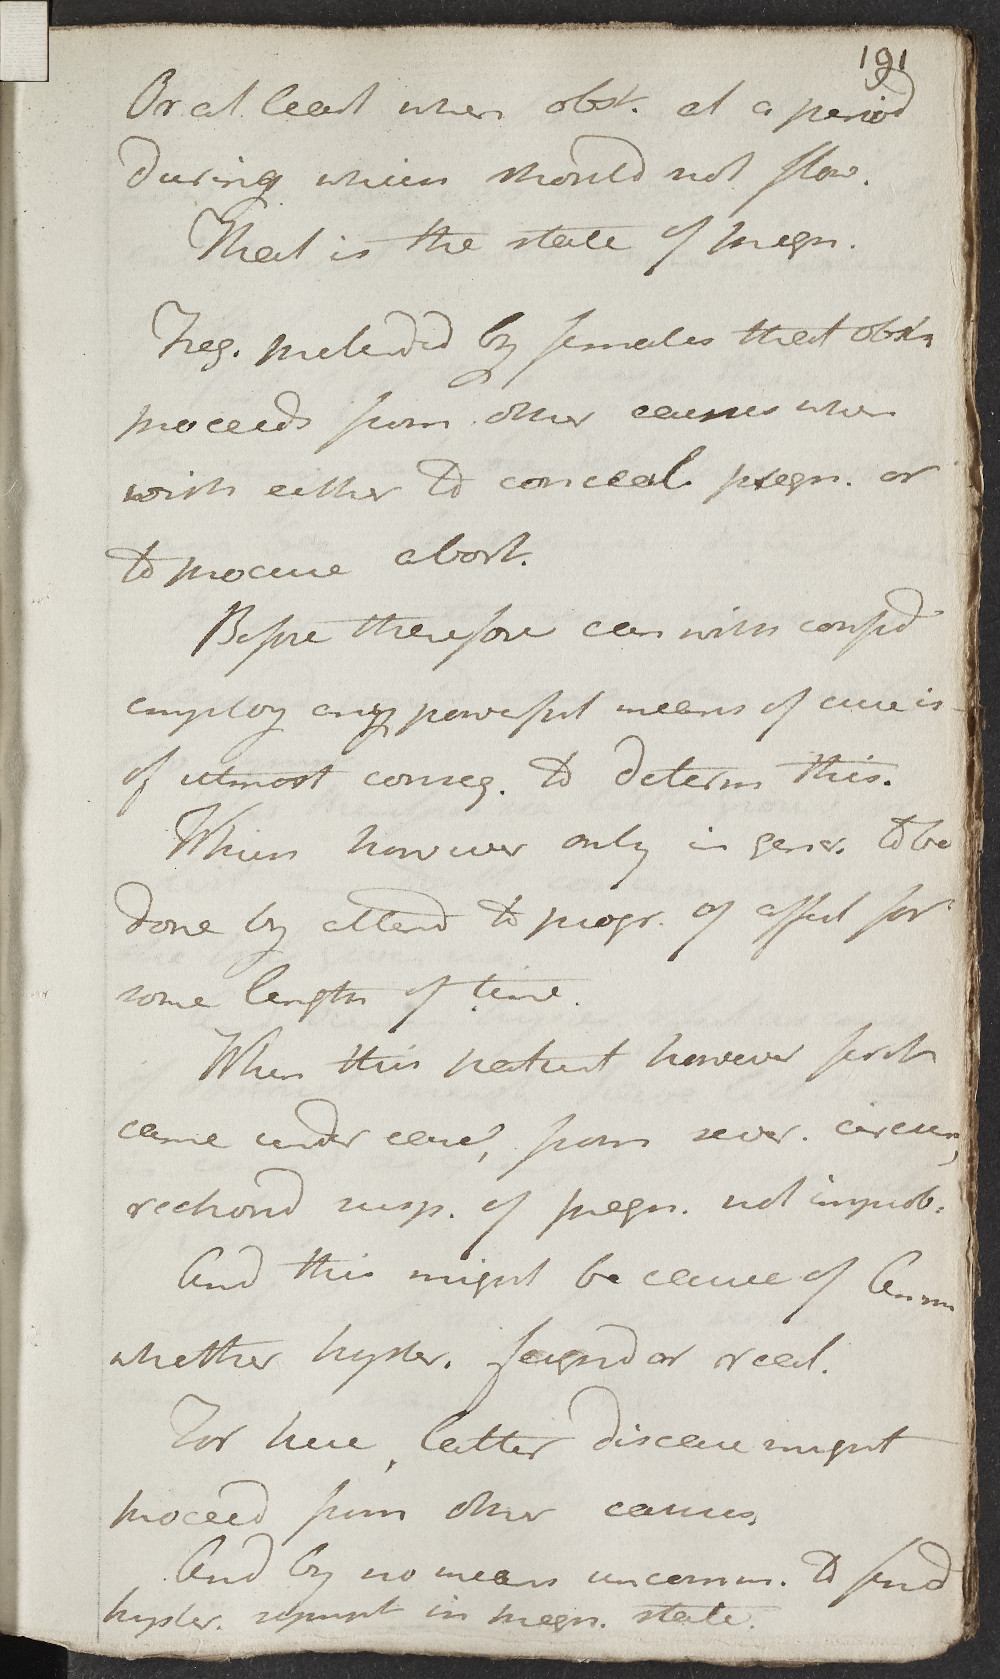 191
Or at least when obst. at a period
during which should not flow.
That is the state of pregn.
Freq. pretend'd by females that obst'n
proceeds from other causes when
wish either to conceal pregn. or
to procure abort.
Before therefore can with confid
employ any powerful means of cure is
of utmost conseq. to determ this.
Which however only in gener. to be
done by attend to progr. of affect for
some length of time.
When this patient however first
came under care, from sever. circum,
reckond susp. of pregn. not improb.
And this might be cause of
whether hyster. feignd or real.
For here, latter disease might
proceed from other causes,
And by no means uncomm. to find
hyster. sympt in pregn. state.